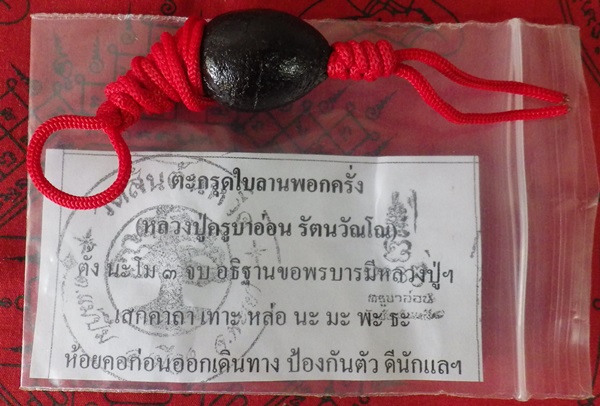 ตะกรุดใบลานพอกครั่ง
(หลวงปู่ครูบาอ่อน รัตนวัณโณ)
ตั้ง นะโม ๓ จบ อธิฐานขอพรบารมีหลวงปู่ฯ
เสกคาถา เทาะ หล่อ นะ มะ พะ ธะ
ห้อยคอก่อนออกเดินทาง ป้องกันตัว ดีนักแลฯ
ครูบาอ่อน